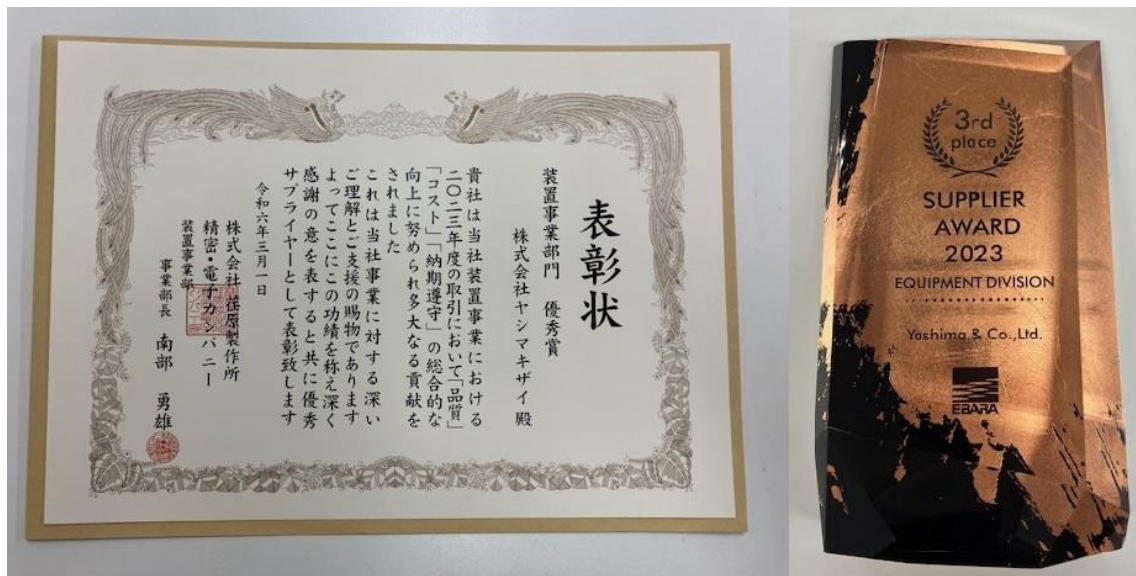 表彰状
装置事業部門 優秀賞
株式会社ヤシマキザイ 殿
貴社は当社装置事業における
二〇二三年度の取引において「品質」
「コスト」「納期遵守」の総合的な
向上に努められ多大なる貢献を
されました
これは当社事業に対する深い
ご理解とご支援の賜物であります
よってここにこの功績を称え深く
感謝の意を表すると共に優秀
サプライヤーとして表彰致します
令和六年三月一日
株式会社荏原製作所
精密・電子カンパニー
装置事業部
事業部長 南部 勇雄
3rd
place
SUPPLIER
AWARD
2023
EQUIPMENT DIVISION
Yashima & Co.,Ltd.
EBARA